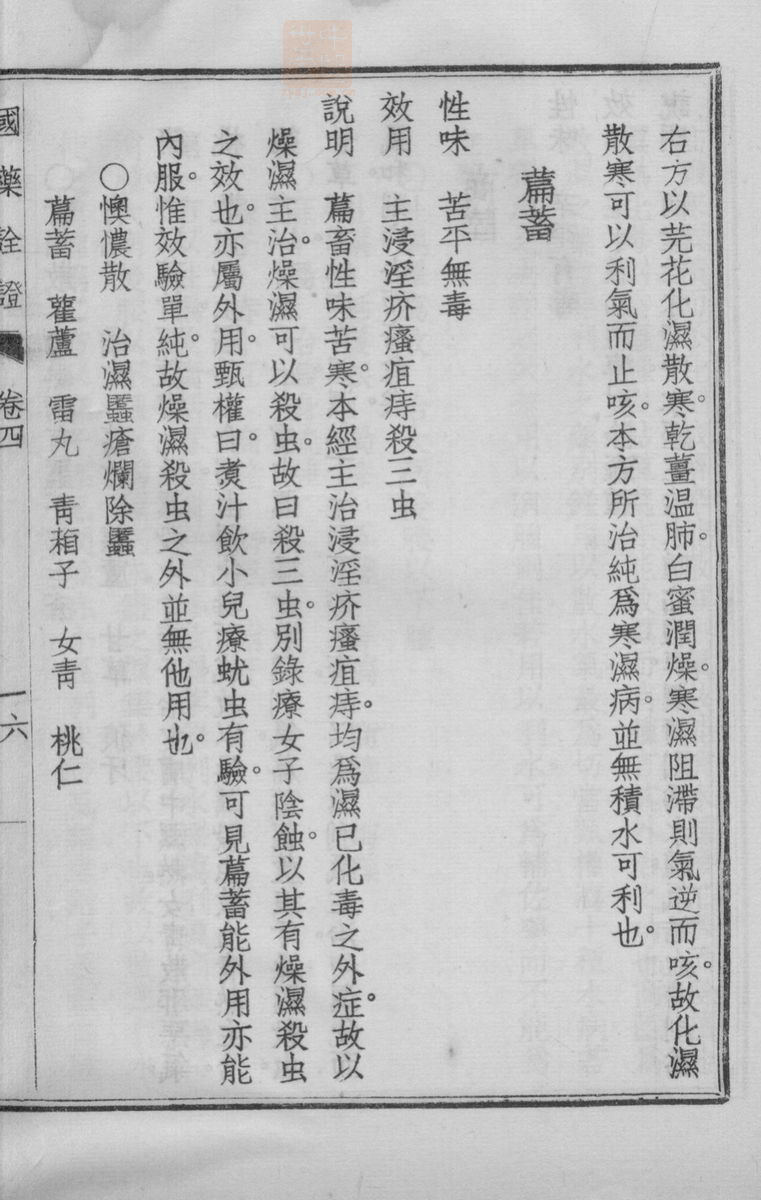 右方以芫花化濕散寒。乾薑温肺。白蜜潤燥。寒濕阻滯則氣逆而咳。故化濕
散寒可以利氣而止咳。本方所治純爲寒濕病。並無積水可利也。
萹蓄
性味　苦平無毒
效用　主浸淫疥瘙疽痔殺三虫
說明　萹畜性味苦寒。本經主治浸淫疥瘙疽痔。均爲濕已化毒之外症。故以
燥濕主治。燥濕可以殺虫。故曰殺三虫。別錄療女子陰蝕。以其有燥濕殺虫
之效也。亦屬外用。甄權曰。煑汁飲小兒療蚘虫有驗。可見萹蓄能外用亦能
內服。惟效驗單純。故燥濕殺虫之外並無他用也。
〇懊憹散　治濕䘌瘡爛除䘌
萹蓄　雚蘆　雷丸　靑葙子　女靑　桃仁
國藥詮證　卷四　一六